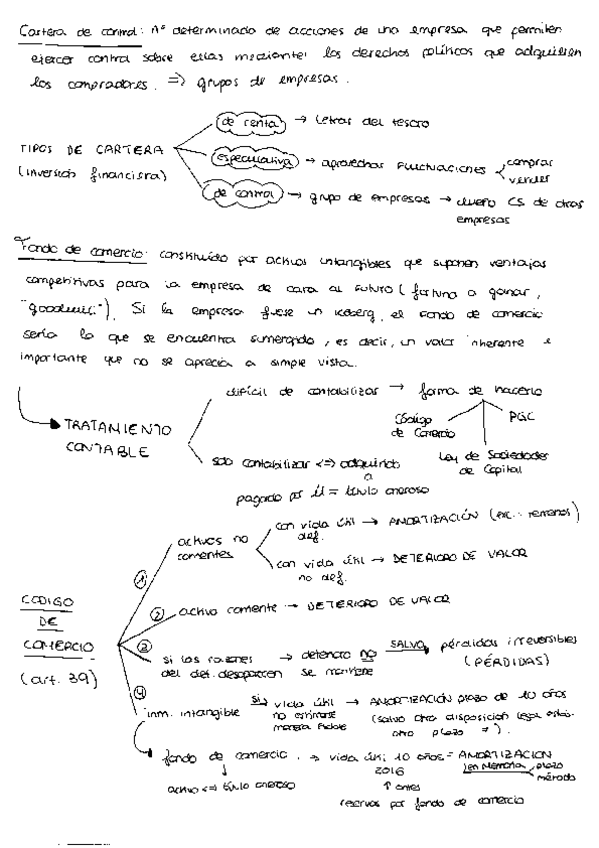 Cartera de control: nº determinado de acciones de una empresa que permiten
ejercer control sobre ellas mediante los derechos políticos que adquieren
los compradores. => grupos de empresas.
TIPOS DE CARTERA
(inversión financiera)
de renta → Letras del tesoro
especulativa → aprovechar fluctuaciones comprar
vender
de control → grupo de empresas → dueño CS de otras
empresas
Fondo de comercio: constituido por activos intangibles que suponen ventajas
competitivas para la empresa de cara al futuro (fortuna a ganar,
"goodwill"). Si la empresa fuese un iceberg, el fondo de comercio
sería lo que se encuentra sumergido, es decir, un valor inherente e
importante que no se aprecia a simple vista.
TRATAMIENTO
CONTABLE
difícil de contabilizar → forma de hacerlo
Código
de Comercio
Ley de Sociedades
de Capital
PGC
solo contabilizar <=> adquirido
a
pagado por él = título oneroso
CODIGO
DE
COMERCIO
(art. 39)
① activos no
corrientes
con vida útil → AMORTIZACIÓN (exc.: terrenos)
def.
con vida útil → DETERIORO DE VALOR
no def.
② activo corriente → DETERIORO DE VALOR
③ si las razones → deterioro no SALVO pérdidas irreversibles
del det. desaparecen se mantiene (PÉRDIDAS)
④ inm. intangible si vida útil → AMORTIZACIÓN plazo de 10 años
no estimarse (salvo otra disposición legal
manera fiable otro plazo ≠).
fondo de comercio. → vida útil 10 años = AMORTIZACION
activo <=> título oneroso
2016
↑ antes
reservas por fondo de comercio
en Memoria plazo
método